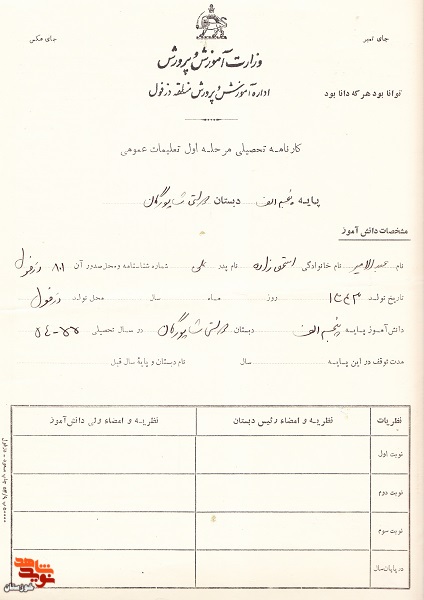 جای تمبر
جای عکس
وزارت آموزش و پرورش
توانا بود هر که دانا بود
اداره آموزش و پرورش منطقه دزفول
کارنامه تحصیلی مرحله اول تعلیمات عمومی
پایه پنجم الف دبستان دولتی شاپورگان
مشخصات دانش آموز
نام عبدالامیر نام خانوادگی زاده نام پدر علی شماره شناسنامه و محل صدور آن ۸۰۱ دزفول
تاریخ تولد ۱۳۴۳ روز ماه سال محل تولد دزفول
دانش آموز پایه پنجم الف دبستان دولتی شاپورگان در سال تحصیلی
مدت توقف در این پایه سال نام دبستان و پایه سال قبل
نظریات
نظریه و امضاء رئیس دبستان
نظریه و امضاء ولی دانش آموز
نوبت اول
نوبت دوم
نوبت سوم
در پایان سال
شاهد
نوید
خوزستان